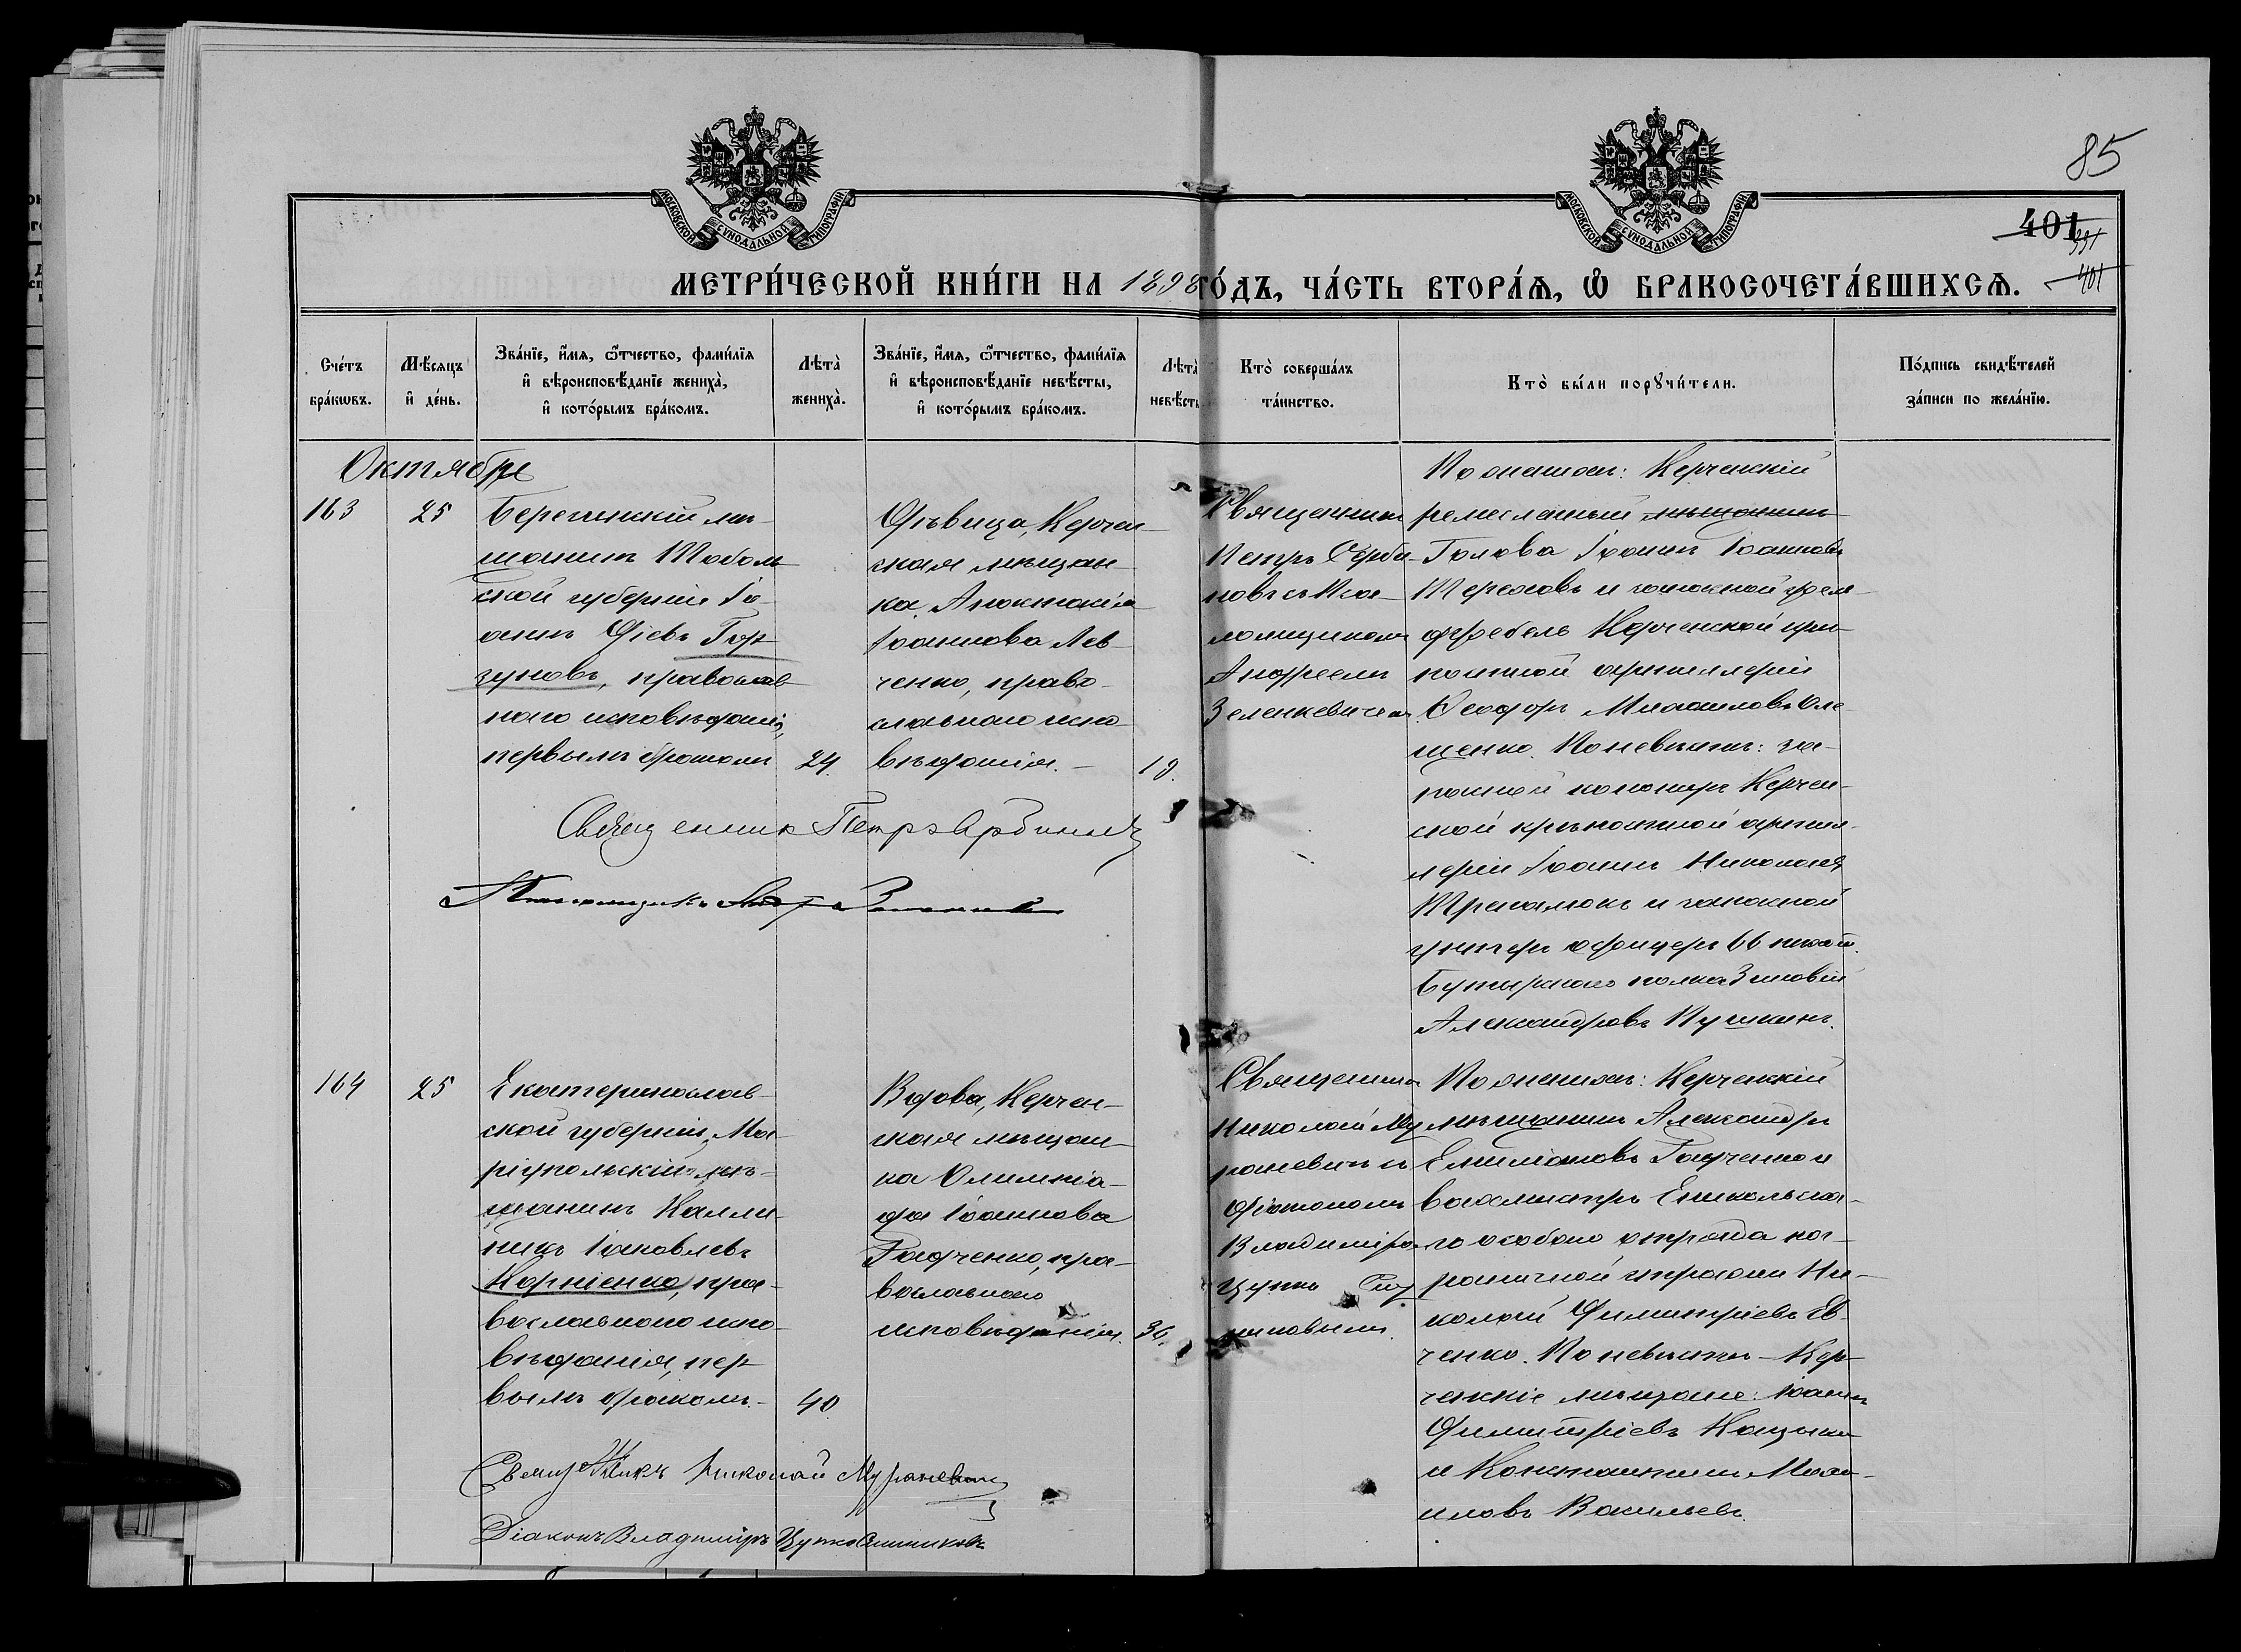 85
401
391
401
МОСКОВСКОЙ СѴНОДАЛЬНОЙ ТИПОГРАФІИ
МОСКОВСКОЙ СѴНОДАЛЬНОЙ ТИПОГРАФІИ
МЕТРИ́ЧЕСКОЙ КНИ́ГИ НА 1898 ГО́ДЪ, ЧА́СТЬ ВТОРА́Я, Ѡ БРАКОСОЧЕТА́ВШИХСЯ.
Сче́тъ бра́кѡвъ.
Мѣ́сяцъ и҆ де́нь.
Зва́нїе, и҆́мя, ѻ҆́тчество, фами́лїя и҆ вѣроисповѣ́данїе жениха̀, и҆ кото́рымъ бра́комъ.
Лѣта̀ жениха̀.
Зва́нїе, и҆́мя, ѻ҆́тчество, фами́лїя и҆ вѣроисповѣ́данїе невѣ́сты, и҆ кото́рымъ бра́комъ.
Лѣта̀ невѣ́сты
Кто̀ соверша́лъ та́инство.
Кто̀ бы́ли порꙋчи́тели.
По́дпись свидѣ́телей за́писи по жела́нїю.
Октябрь
163
25
шанинъ Тоболь-
ской губерніи Іо-
аннъ Гор-
гуновъ, православ-
наго исповѣданія,
первымъ бракомъ
24.
Дѣвица, Керчен-
ская мѣщан-
ка
Іоаннова Лев-
ченко, право-
славнаго испо-
вѣданія. -
19.
Священникъ
Петръ Сербі-
новъ съ Пса-
ломщикомъ
Андреемъ
Зеленкевичемъ.
По женихѣ: Керченскій
ремесленный мѣщанинъ
Голова Іоаннъ Іоанновъ
Тереховъ и запасной фельд-
фебель Керченской крѣ-
постной артиллеріи
Ѳеодоръ Михаиловъ Оле-
щенко. По невѣстѣ: за-
пасной канониръ Керчен-
ской крѣпостной артил-
леріи Іоаннъ Николаевъ
и запасной
унтеръ офицеръ 66 пѣхот.
Бутырскаго полка Зиновій
Александровъ Пушкинъ.
Священникъ Петръ Сербиновъ
164
25
Екатеринослав-
ской губерніи, Ма-
ріупольскій мѣ-
щанинъ Калли-
никъ Іаковлевъ
Корніенко, пра-
вославнаго испо-
вѣданія, пер-
вымъ бракомъ. -
40
Вдова, Керчен-
ская мѣщан-
ка Олимпіа-
да Іоаннова
Гайченко, пра-
вославнаго
исповѣданія.
36.
Священникъ
Николай Му-
раневичъ съ
Діакономъ
Владиміромъ
Цупко Сит-
никовымъ.
По женихѣ: Керченскій
мѣщанинъ Александръ
Емиліановъ Гайченко и
вахмистръ Еникольска-
го особаго отряда пог-
раничной стражи Ни-
колай Димитріевъ Ев-
ченко. По невѣстѣ - Кер-
ченскіе мѣщане: Іоаннъ
Димитріевъ Кацыка
и Константинъ Миха-
иловъ Васильевъ.
Священникъ Николай Мураневичъ
Діаконъ Владиміръ Цупко Ситниковъ